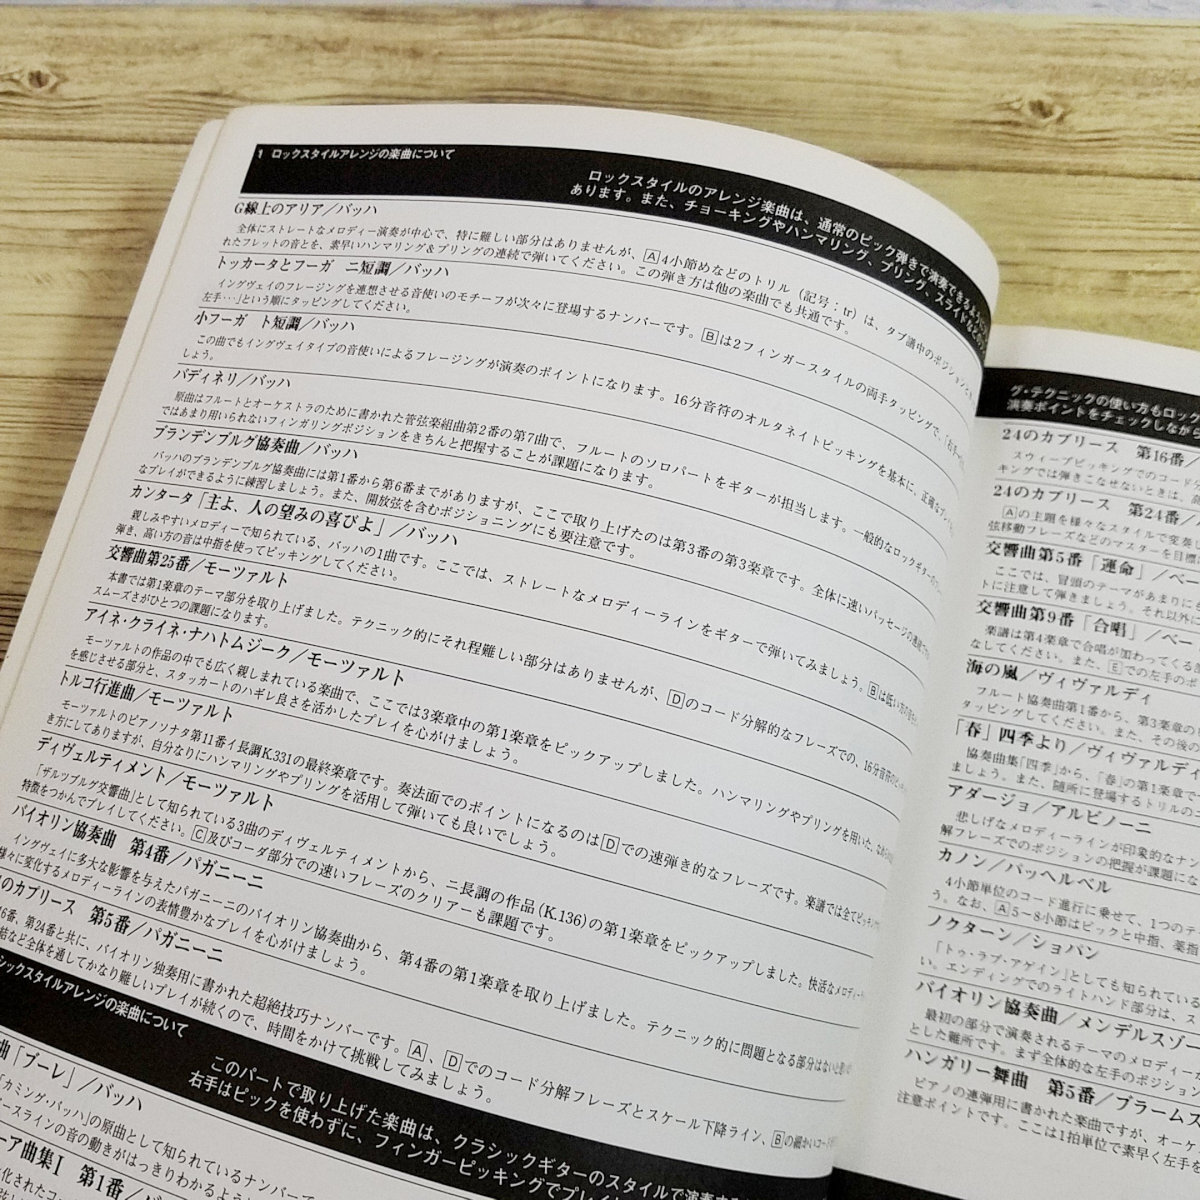 1 ロックスタイルアレンジの楽曲について
ロックスタイルのアレンジ楽曲は、通常のピック弾きで演奏できるように
あります。また、チョーキングやハンマリング、プリング、スライドなどの
G線上のアリア／バッハ
全体にストレートなメロディー演奏が中心で、特に難しい部分はありませんが、A4小節めなどのトリル（記号：tr）は、タブ譜中のポジションに
れたフレットの音とを、素早いハンマリング＆プリングの連続で弾いてください。この弾き方は他の楽曲でも共通です。
トッカータとフーガ ニ短調／バッハ
イングヴェイのフレージングを連想させる音使いのモチーフが次々に登場するナンバーです。Bは2フィンガースタイルの両手タッピングで、「右手
左手…」という順にタッピングしてください。
小フーガ ト短調／バッハ
この曲でもイングヴェイタイプの音使いによるフレージングが演奏のポイントになります。16分音符のオルタネイトピッキングを基本に、正確な
しょう。
バディネリ／バッハ
原曲はフルートとオーケストラのために書かれた管弦楽組曲第2番の第7曲で、フルートのソロパートをギターが担当します。一般的なロックギターの
ではあまり用いられないフィンガリングポジションをきちんと把握することが課題になります。
ブランデンブルグ協奏曲／バッハ
バッハのブランデンブルグ協奏曲には第1番から第6番までがありますが、ここで取り上げたのは第3番の第3楽章です。全体に速いパッセージの連続
なプレイができるように練習しましょう。また、開放弦を含むポジショニングにも要注意です。
カンタータ「主よ、人の望みの喜びよ」／バッハ
親しみやすいメロディーで知られている、バッハの1曲です。ここでは、ストレートなメロディーラインをギターで弾いてみましょう。Bは低い
弾き、高い方の音は中指を使ってピッキングしてください。
交響曲第25番／モーツァルト
本書では第1楽章のテーマ部分を取り上げました。テクニック的にそれ程難しい部分はありませんが、Dのコード分解的なフレーズでの、16分音符の
スムーズさがひとつの課題になります。
アイネ・クライネ・ナハトムジーク／モーツァルト
モーツァルトの作品の中でも広く親しまれている楽曲で、ここでは3楽章中の第1楽章をピックアップしました。ハンマリングやプリングを用いた、
を感じさせる部分と、スタッカートのハギレ良さを活かしたプレイを心がけましょう。
トルコ行進曲／モーツァルト
モーツァルトのピアノソナタ第11番イ長調K.331の最終楽章です。奏法面でのポイントになるのはDでの速弾き的なフレーズです。楽譜では全て
き方にしてありますが、自分なりにハンマリングやプリングを活用して弾いても良いでしょう。
ディヴェルティメント／モーツァルト
「ザルツブルグ交響曲」として知られている3曲のディヴェルティメントから、ニ長調の作品(K.136)の第1楽章をピックアップしました。快活な
特徴をつかんでプレイしてください。C及びコーダ部分での速いフレーズのクリアーも課題です。
バイオリン協奏曲 第4番／パガニーニ
イングヴェイに多大な影響を与えたパガニーニのバイオリン協奏曲から、第4番の第1楽章を取り上げました。テクニック的に問題となる部分はないと
様々に変化するメロディーラインの表情豊かなプレイを心がけましょう。
のカプリース 第5番／パガニーニ
16番、第24番と共に、バイオリン独奏用に書かれた超絶技巧ナンバーです。A、Dでのコード分解フレーズとスケール下降ライン、Bの細かいコード
結など全体を通してかなり難しいプレイが続くので、時間をかけて挑戦してみましょう。
シックスタイルアレンジの楽曲について
このパートで取り上げた楽曲は、クラシックギターのスタイルで演奏する
右手はピックを使わずに、フィンガーピッキングでプレイ
曲「ブーレ」／バッハ
「カミング・バッハ」の原曲として知られているナンバーで
ースラインの音の動きがはっきりわかるように
ーア曲集I 第1番／
グ・テクニックの使い方もロック
演奏ポイントをチェックしながら
24のカプリース 第16番／
スウィープピッキングでのコード分
キングでは弾きこなせないときは、
24のカプリース 第24番／
Aの主題を様々なスタイルで変奏し
弦移動フレーズなどのマスターを目標
交響曲第5番「運命」／ベー
ここでは、冒頭のテーマがあまりに
トに注意して弾きましょう。それ以外に
交響曲第9番「合唱」／ベー
楽譜は第4楽章で合唱が加わってくる部
なしてください。また、Eでの左手のポ
海の嵐／ヴィヴァルディ
フルート協奏曲第1番から、第3楽章の
タッピングしてください。また、その後の
「春」四季より／ヴィヴァルディ
協奏曲集「四季」から、「春」の第1楽章で
ましょう。また、随所に登場するトリルの
アダージョ／アルビノーニ
悲しげなメロディーラインが印象的なナン
解フレーズでのポジションの把握が課題にな
カノン／パッヘルベル
4小節単位のコード進行に乗せて、1つのテ
う。なお、A5～8小節はピックと中指、薬指
ノクターン／ショパン
「トゥ・ラブ・アゲイン」としても知られている
い。エンディングでのライトハンド部分は、ス
バイオリン協奏曲／メンデルスゾー
最初の部分で演奏されるテーマのメロディー
とした難所です。まず全体的な左手のポジション
ハンガリー舞曲 第5番／ブラームス
ピアノの連弾用に書かれた楽曲ですが、オーケ
注意ポイントです。ここは1拍単位で素早く左手を